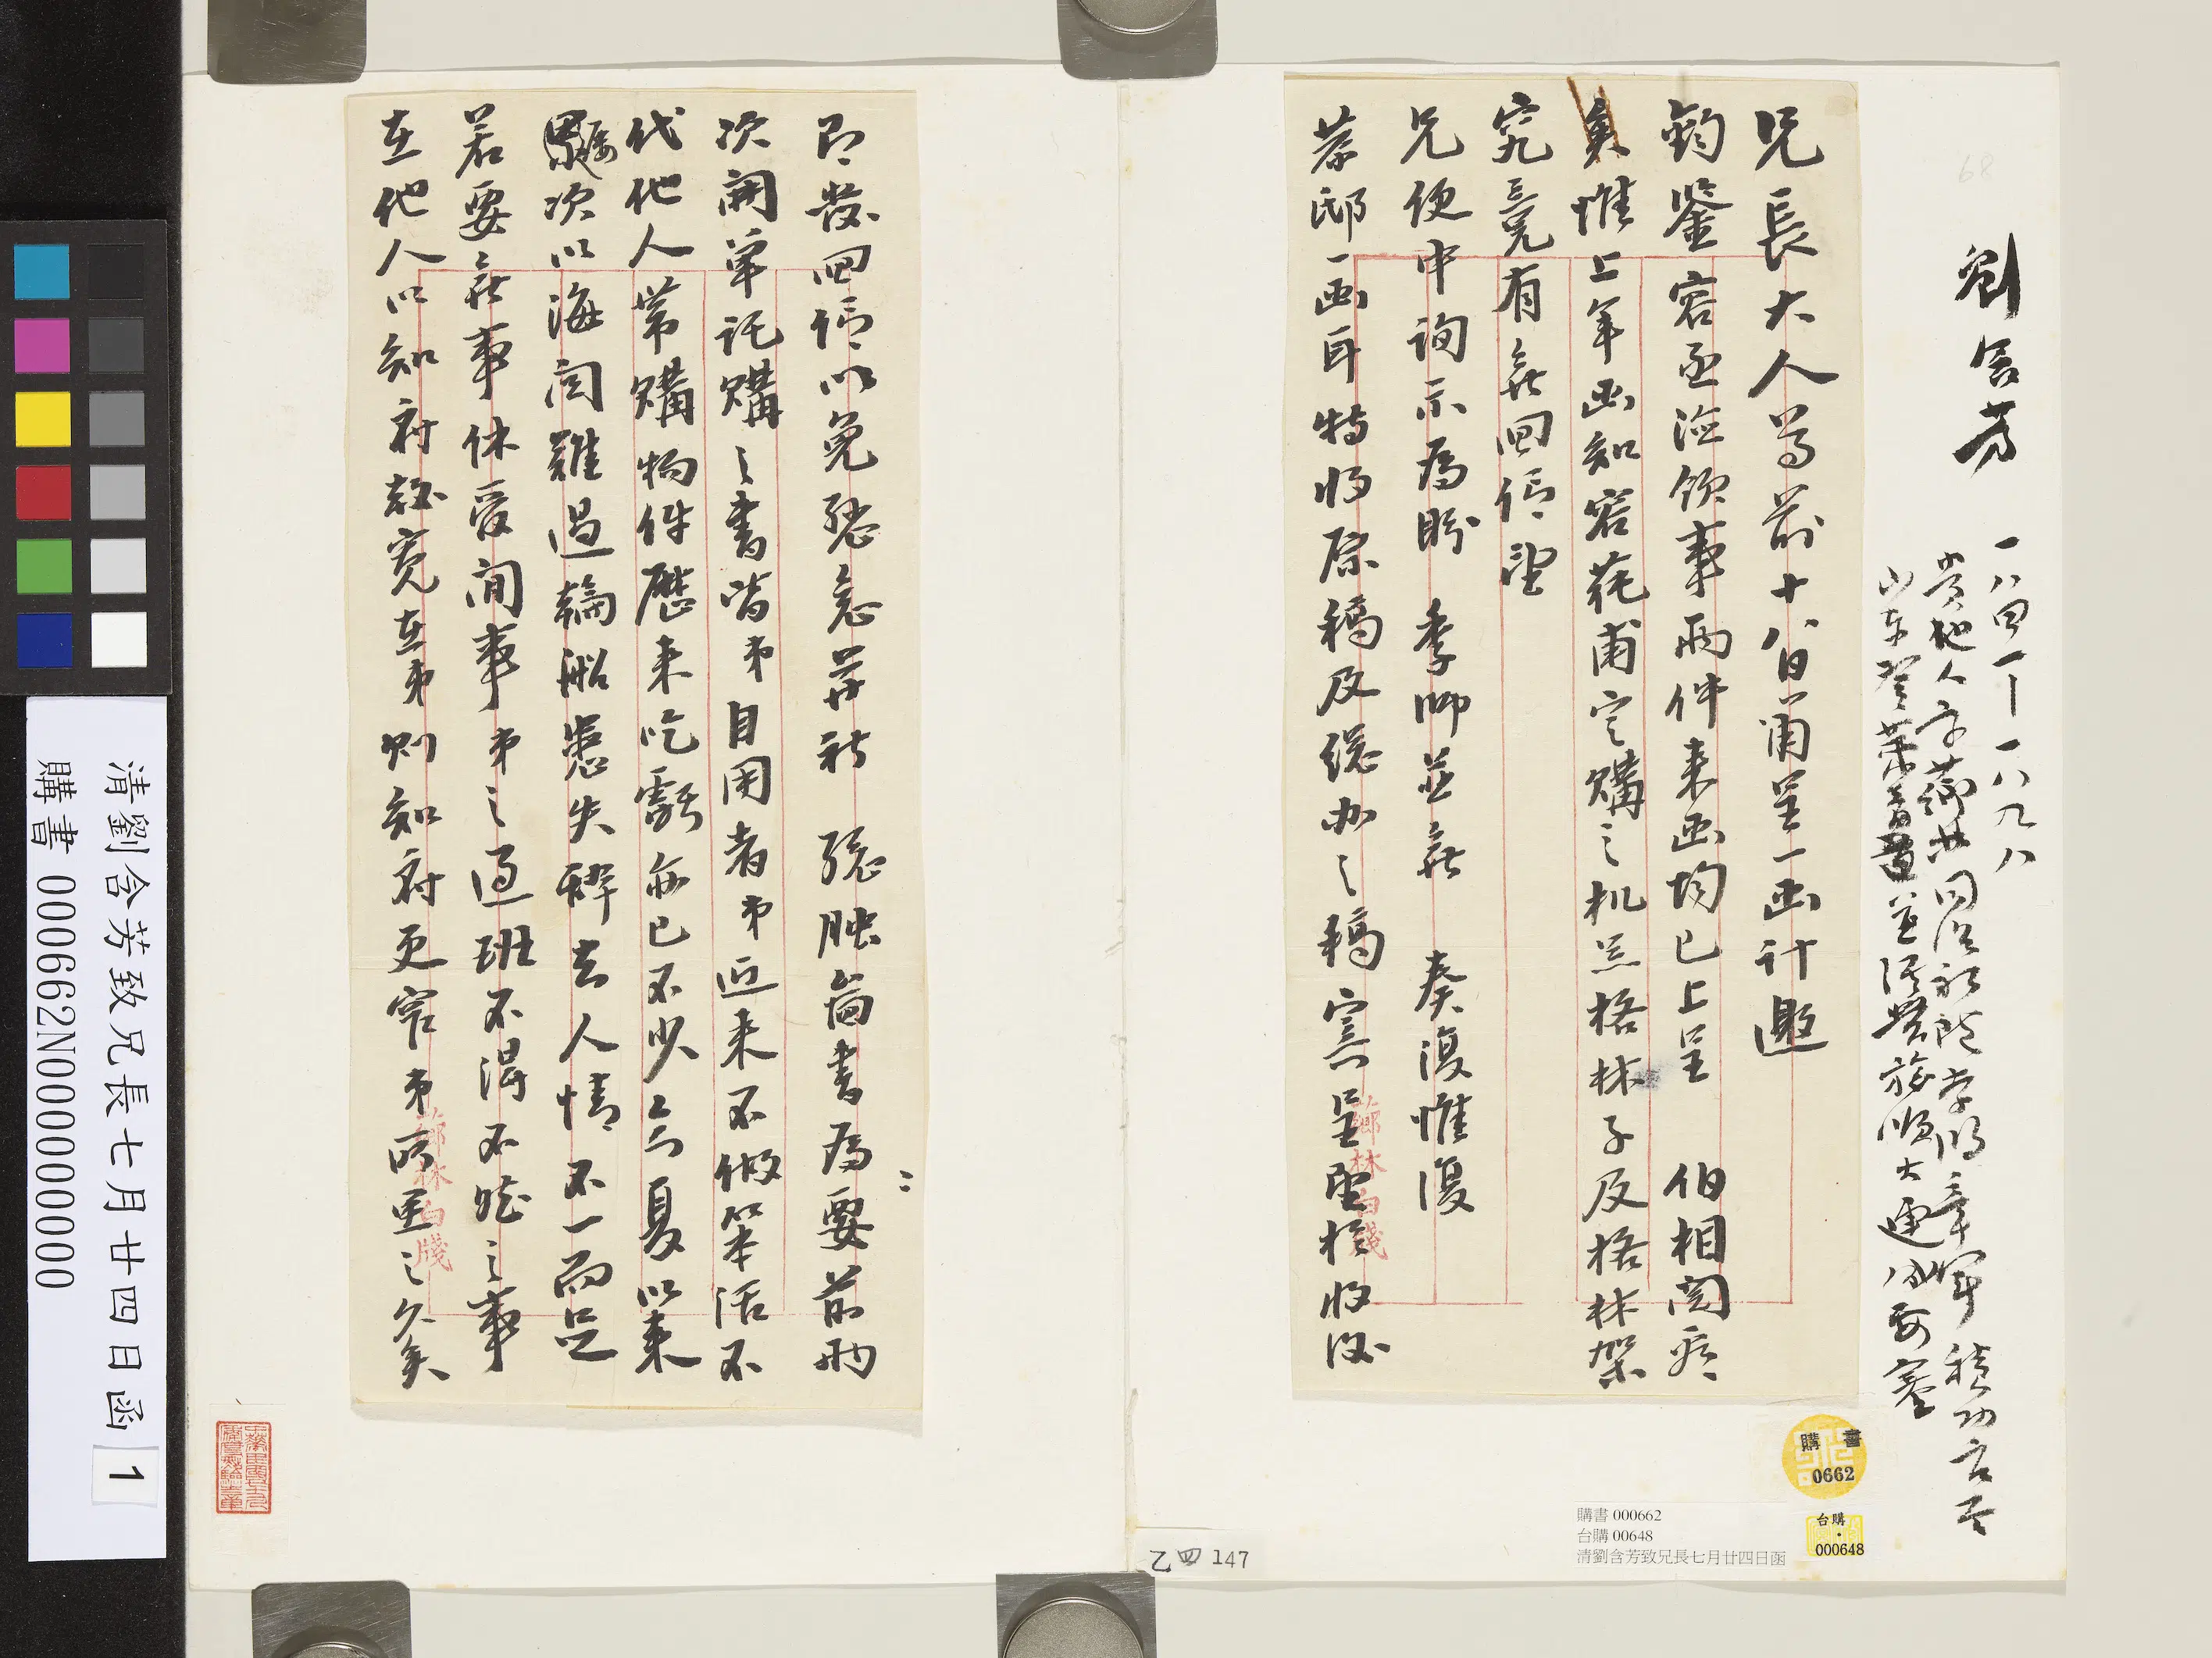 劉含芳
一八四一丨一八九八
貴池人字薌林同治初從李鴻章軍積功官至
山東登萊青道並經營旅順大連灣要塞
兄長大人尊前十八日肅呈一函計邀
鈞鑒容丞論領事兩件來函均已上呈 伯相閱
矣惟上年函知容莼甫定購之机器格林子及格林架
究竟有無回信望
兄便中詢示為盼 季師並無 奏復惟復
萘邸一函耳特將原稿及總办之稿寄呈望檢收後
即發回信以免懸念並祈 總賬簡書為要前兩
次開單託購之書皆弟自用者弟近來不做笨活不
代他人帶購物件歷來吃虧亦已不少上而夏以來
累次以海関難過輪船患失碎去人情不一而足
若要無事休管閒事弟之過班不得不然之事
在他人以知府較寬在弟則知府更窄弟所畫之久矣
薌林白牋
薌林白牋
購書
0662
台購
000648
購書 000662
台購 00648
清劉含芳致兄長七月廿四日函
乙四 147
68
清劉含芳致兄長七月廿四日函 1
購書 000662N000000000